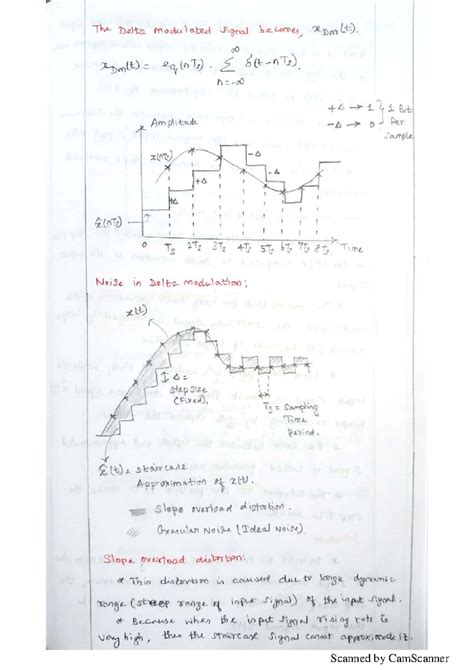 The Delta modulated signal becomes, x_Dm(t).
x_Dm(t) = e_q(nTs) . ∞ Σ n=-∞ δ(t-nTs).
+Δ → 1 } 1 Bit
-Δ → 0 Per
Sample
Amplitude
x(nTs)
-Δ
-Δ
+Δ
+Δ
x̂(nTs)
0 Ts 2Ts 3Ts 4Ts 5Ts 6Ts 7Ts 8Ts Time
Noise in Delta modulation;
x(t)
Δ =
step size
(Fixed).
Ts = Sampling
Time
Period.
x̂(t) = staircase
Approximation of x(t).
Slope overload distortion.
Granular Noise (Ideal Noise).
Slope overload distortion:
* This distortion is caused due to large dynamic
range (steep range of input signal) of the input signal.
* Because when the input signal rising rate is
very high, then the staircase signal cannot approximate it.
Scanned by CamScanner